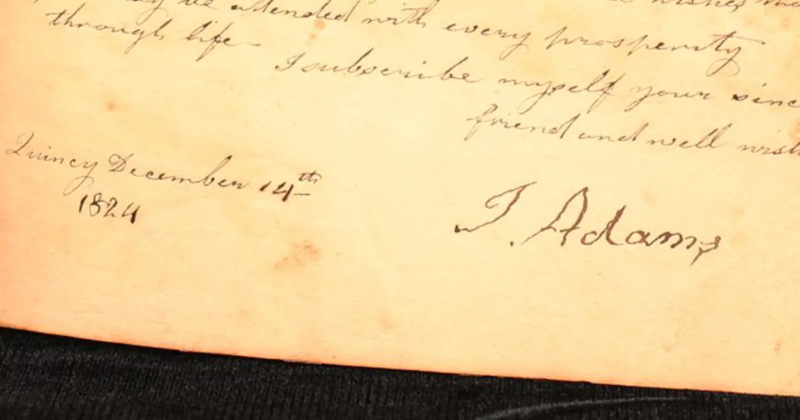 may be attended with every prosperity
through life
I subscribe myself your since
friend and well wish
Quincy December 14th
1824
J. Adams